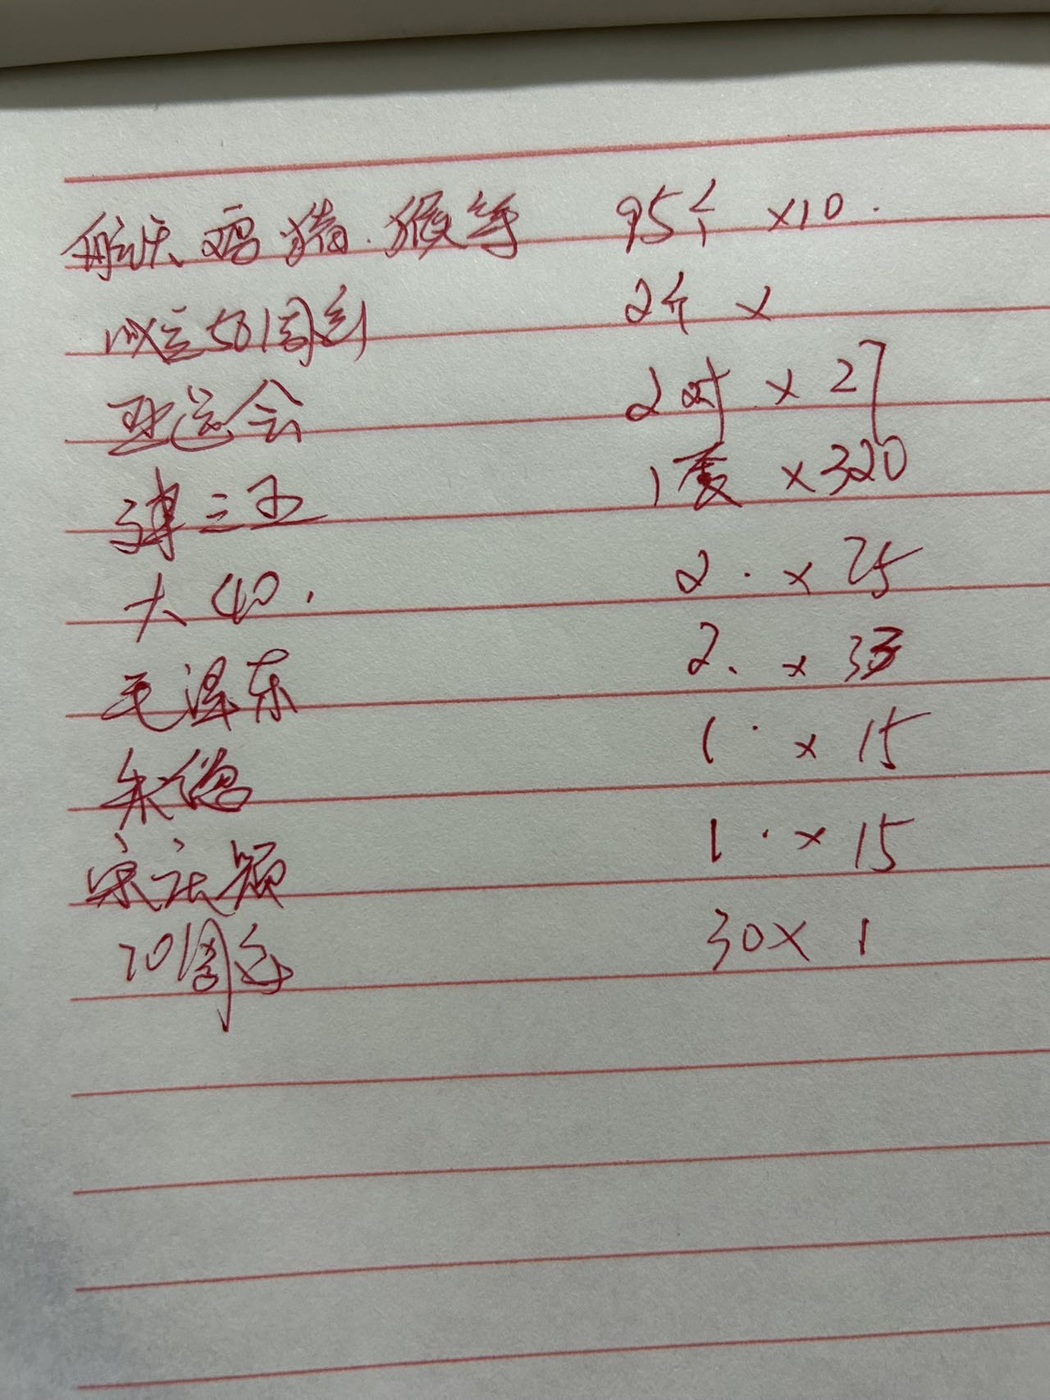 航天 鸡 猪. 猴等 95个 ×10.
成立50周年 2个 ×
亚运会 2对 × 27
弹三王 1套 ×320
大40. 2. × 25
毛泽东 2. × 33
朱德 1. × 15
宋庆龄 1. × 15
70周年 30× 1